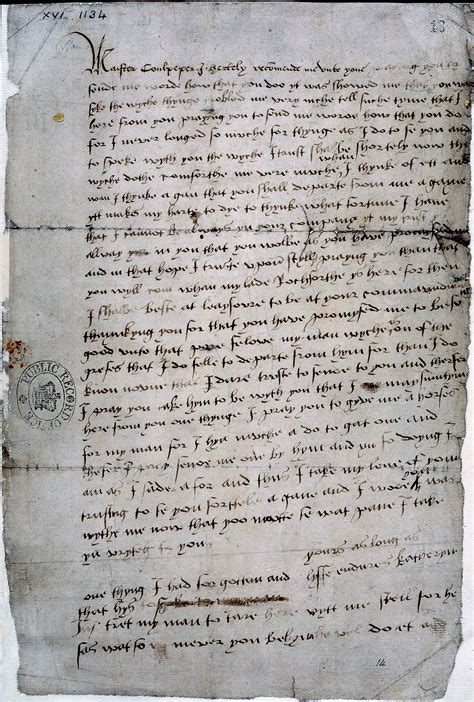 XVI 1134
13
Master Coulpeper I hertely recomende me unto youe praying you to
sende me worde how that you doo yt was showed me that you was
seke the wyche thynge trobled me very muche tell suche tyme that I
here from you praying you to send me worde how that you do
for I never longed so muche for thynge as I do to se you and
to speke wyth you the wyche I trust shalbe shortely now the
wyche dothe comforthe me very muche whan I thynke of ett and
wan I thynke agan that you shall departe from me agane
ytt makes my harte to dye to thynke what fortune I have
that I cannot be always yn your company yt my trust
allway in you that you wolbe as you have promysed
and in that hope I truste upon styll praying you than that
you wyll com whan my lade Rochforthe ys here for then
I shalbe beste at leaysoure to be at your commaundmant
thaynkyng you for that you have promysed me to be so
good unto that pore felowe my man wyche on of the
grefes that I do felle to departe from hym for than I do
know noone that I dare truste to sende to you and therfor
I pray you take hym to be wyth you that I may sumtym
here from you one thynge I pray you to gyve me a horse
for my man for I hyd muche ado to gat one and
therfor I pray sende me one by hym and yn so doying I
am as I sade afor and thus I take my leve of you
trusting to se you shortele agane and I wode you war
wythe me now that you maitte se wat pane I take
yn wryteg to you
yours as long as
lyffe endures Katheryn
one thyng I had forgotten and
that hys to
tret my man to tare here wytt me still for he
sas wat so ever you bed hym he wel do et
14
PUBLIC RECORD OFFICE